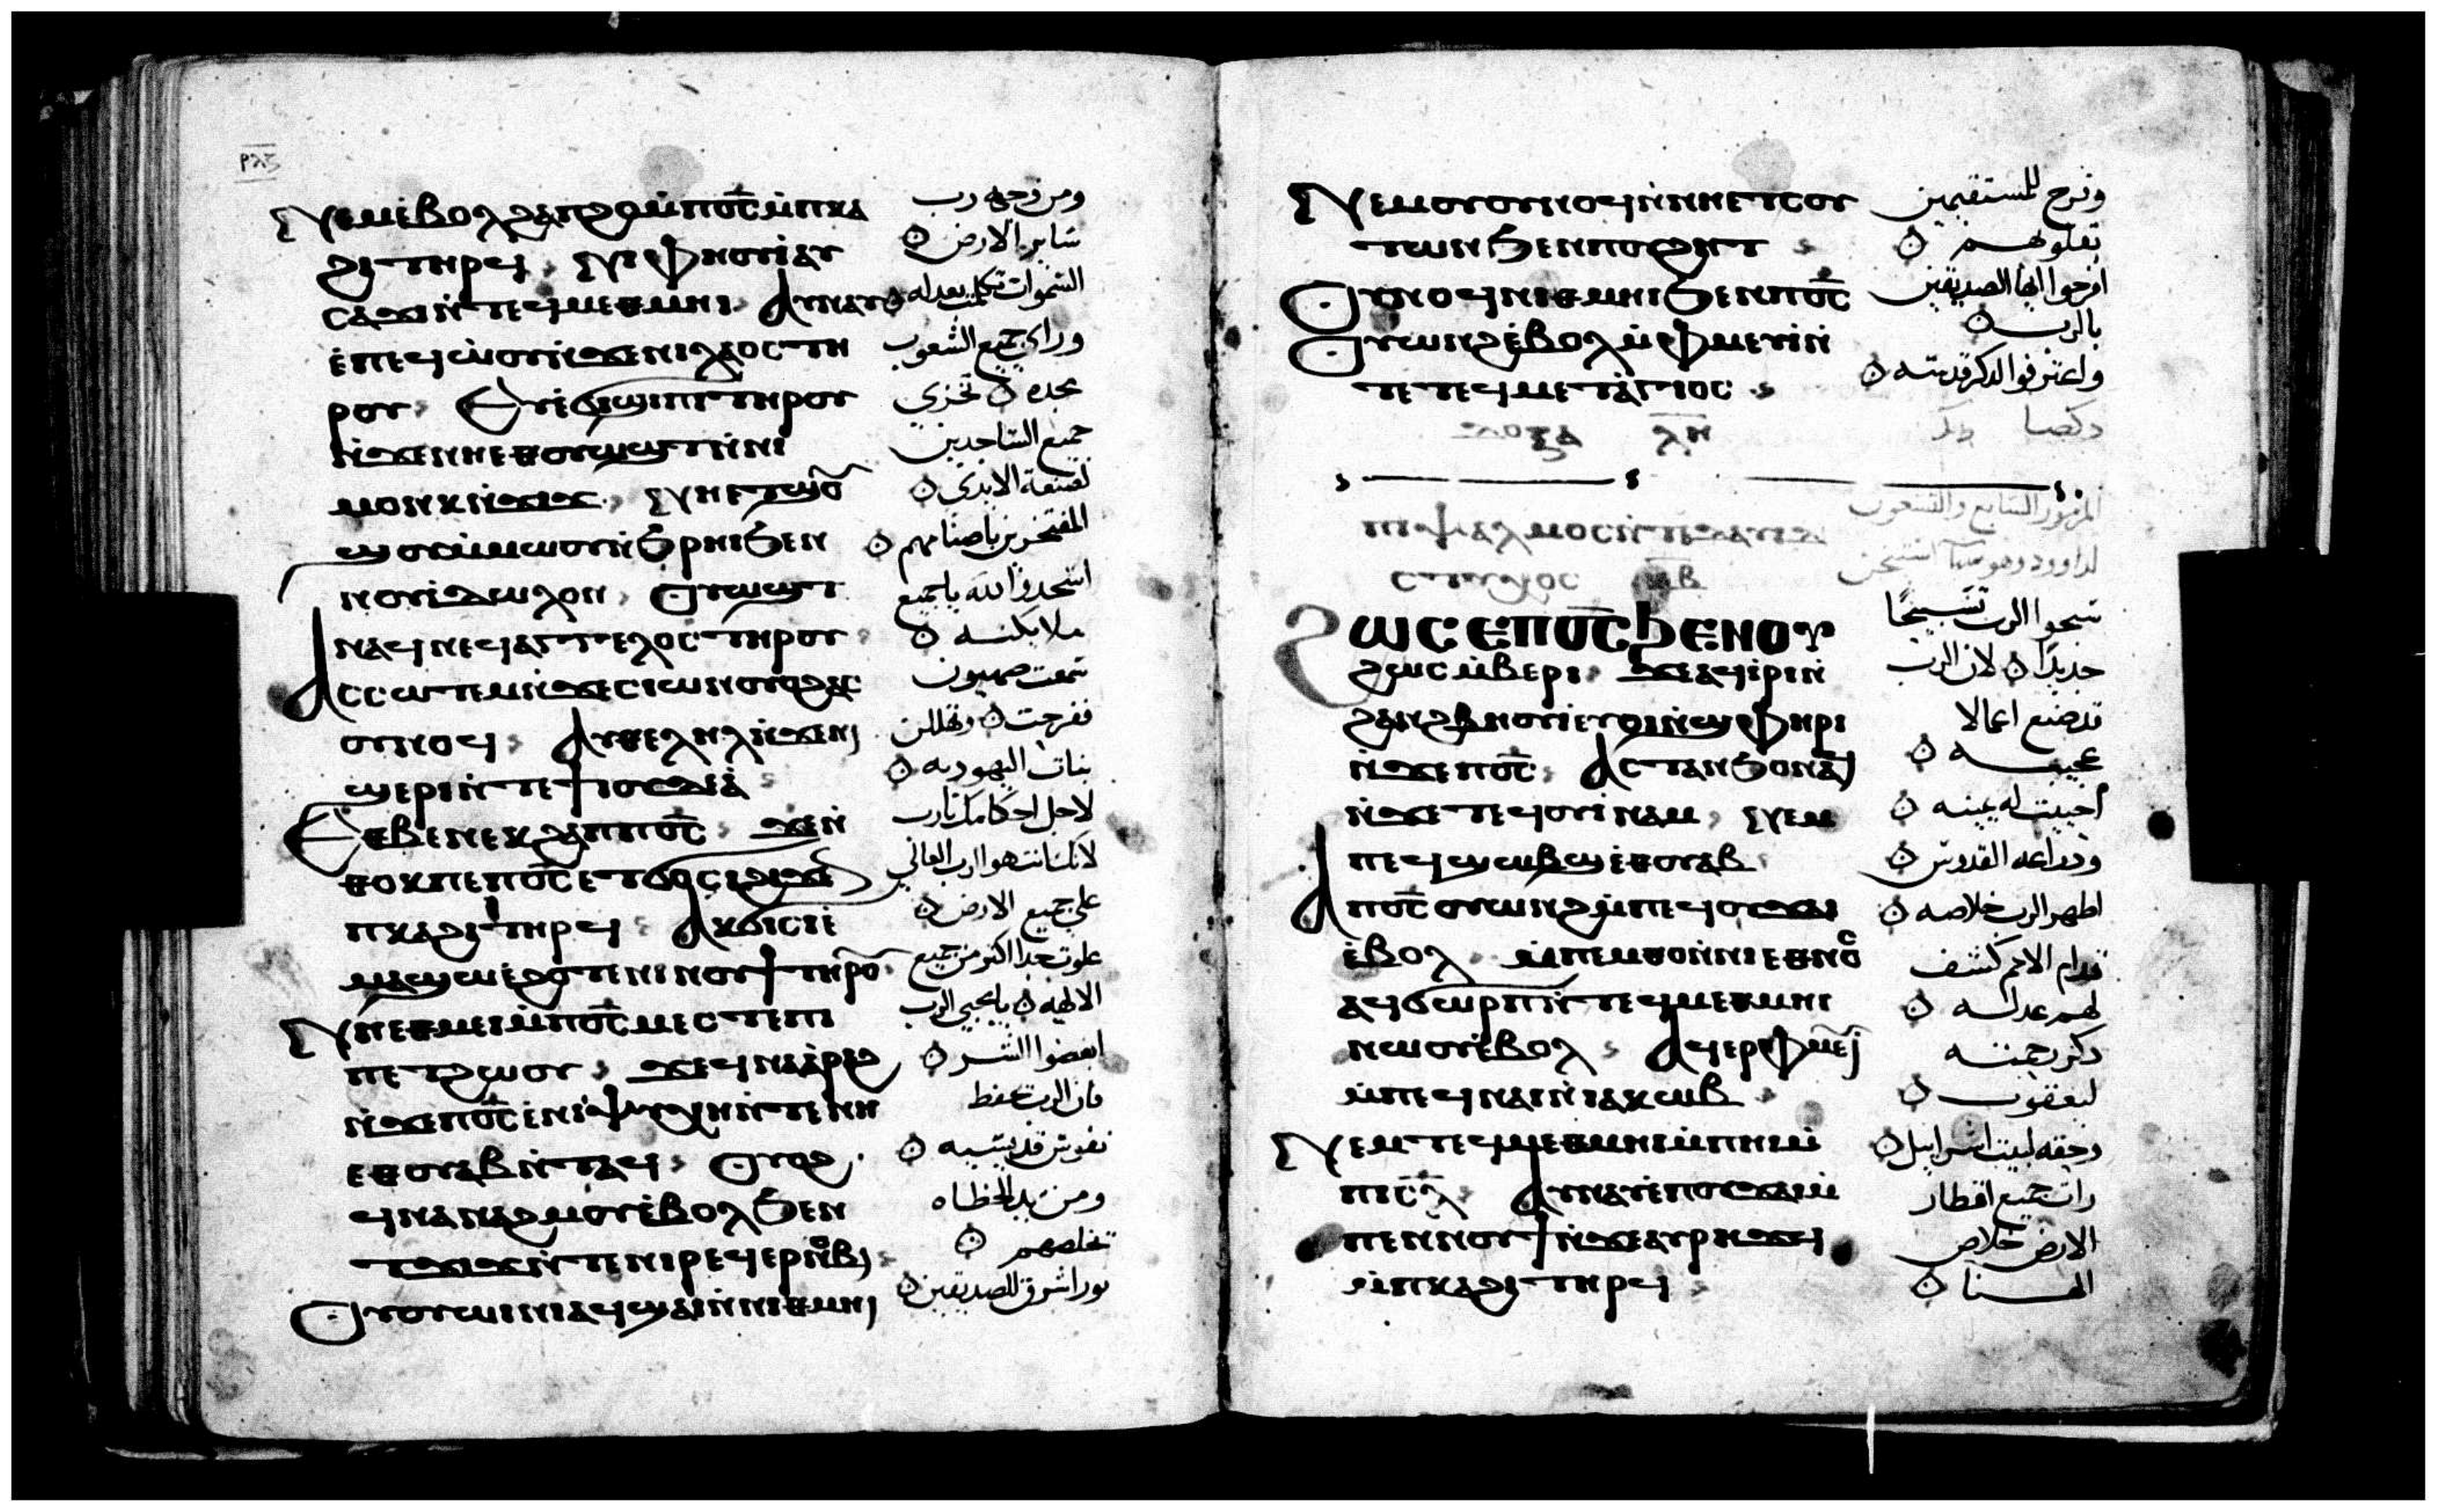 ⲣⲗⲋ
Ⲛⲉⲙ ⲉ̀ⲃⲟⲗ ϩⲁ ⲡϩⲟ ⲙ̀ⲡⲟ̅ⲥ̅ ⲙ̀ⲡⲕⲁ
ϩⲓ ⲧⲏⲣϥ Ⲛⲓⲫⲏⲟⲩⲓ̀ ⲁⲩ
ⲥⲁϫⲓ ⲛ̀ⲧⲉϥⲙⲉⲑⲙⲏⲓ Ⲁⲩⲛⲁⲩ
ⲉ̀ⲡⲉϥⲱ̀ⲟⲩ ⲛ̀ϫⲉ ⲛⲓⲗⲁⲟⲥ ⲧⲏ
ⲣⲟⲩ Ⲉⲩⲉ̀ϭⲓϣⲓⲡⲓ ⲧⲏⲣⲟⲩ
ⲛ̀ϫⲉ ⲛⲏⲉⲑⲟⲩⲱϣⲧ ⲛ̀ⲛⲓ
ⲙⲟⲛⲕ ⲛ̀ϫⲓϫ Ⲛⲏⲉⲧϣⲟ
ϣⲟⲩ ⲙ̀ⲙⲱⲟⲩ ⲛ̀ϧⲣⲏⲓ ϧⲉⲛ
ⲛⲟⲩⲓ̀ⲇⲱⲗⲟⲛ Ⲟⲩⲱϣⲧ
ⲙ̀ⲙⲟϥ ⲛⲉϥⲁⲅⲅⲉⲗⲟⲥ ⲧⲏⲣⲟⲩ
Ⲁⲥⲥⲱⲧⲉⲙ ⲛ̀ϫⲉ ⲥⲓⲱⲛ ⲟⲩⲟϩ ⲁⲥ
ⲟⲩⲛⲟϥ Ⲁⲩⲑⲉⲗⲏⲗ ⲛ̀ϫⲉ ⲛⲓ
ϣⲉⲣⲓ ⲛ̀ⲧⲉ ϯⲓⲟⲩⲇⲉⲁ̀
Ⲉⲑⲃⲉ ⲛⲉⲕϩⲁⲡ ⲡⲟ̅ⲥ̅ ϫⲉ ⲛ̀
ⲑⲟⲕ ⲡⲉ ⲡⲟ̅ⲥ̅ ⲉⲧϭⲟⲥⲓ ϩⲓϫⲉⲛ
ⲡⲕⲁϩⲓ ⲧⲏⲣϥ Ⲁⲕϭⲓⲥⲓ ⲉ̀
ⲙⲁϣⲱ ⲉ̀ϩⲟⲧⲉ ⲛⲓⲛⲟⲩϯ ⲧⲏⲣⲟⲩ
Ⲛⲏⲉⲑⲙⲉⲓ ⲙ̀ⲡⲟ̅ⲥ̅ ⲙⲉⲥⲧⲉ ⲡⲓ
ⲡⲉⲧϩⲱⲟⲩ ϫⲉ ϥⲛⲁⲁ̀ⲣⲉϩ
ⲛ̀ϫⲉ ⲡⲟ̅ⲥ̅ ⲉ̀ⲛⲓⲯⲩⲭⲏ ⲛ̀ⲧⲉ ⲛⲏ
ⲉⲑⲟⲩⲁⲃ ⲛ̀ⲧⲁϥ Ⲟⲩⲟϩ
ϥⲛⲁⲛⲁϩⲙⲟⲩ ⲉ̀ⲃⲟⲗ ϧⲉⲛ
ⲧϫⲓϫ ⲛ̀ⲧⲉ ⲛⲓⲣⲉϥⲉⲣⲛⲟⲃⲓ
Ⲟⲩⲟⲩⲱⲓⲛⲓ ⲁϥϣⲁⲓ ⲛ̀ⲛⲓⲑⲙⲏⲓ
ومن وجه رب
ساير الارض
السموات تكلمت بعدله
وراي جميع الشعوب
مجده تخزي
جميع الساجدين
لصنعة الايدي
المفتخرين باصنامهم
اسجدوا لله ياجميع
ملايكته
سمعت صهيون
ففرحت وتهللن
بنات اليهوديه
لاجل احكامك يارب
لانك انت هو الرب العالي
علي جميع الارض
علوت جدا اكثر من جميع
الالهه يامحبي الرب
ابغضوا الشر
فان الرب يحفظ
نفوس قديسيه
ومن يد الخطاه
يخلصهم
نور اشرق للصديقين
Ⲛⲉⲙ ⲟⲩⲟⲩⲛⲟϥ ⲛ̀ⲛⲏⲉⲧⲥⲟⲩ
ⲧⲱⲛ ϧⲉⲛ ⲡⲟⲩϩⲏⲧ
Ⲟⲩⲛⲟϥ ⲛⲓⲑⲙⲏⲓ ϧⲉⲛ ⲡⲟ̅ⲥ̅
Ⲟⲩⲱⲛϩ ⲉ̀ⲃⲟⲗ ⲙ̀ⲫⲙⲉⲩⲓ̀ ⲛ̀
ⲧⲉ ⲧⲉϥⲙⲉⲧⲁ̀ⲅⲓⲟⲥ
ⲇⲟⲝⲁ ⲗⲏ
ⲡⲓⲯⲁⲗⲙⲟⲥ ⲛ̀ⲧⲉ ⲇⲁⲩⲓⲇ
ⲥⲧⲩⲭⲟⲥ ⲓ̅ⲃ̅
Ϩⲱⲥ ⲉ̀ⲡⲟ̅ⲥ̅ ϧⲉⲛ ⲟⲩ
ϩⲱⲥ ⲙ̀ⲃⲉⲣⲓ ϫⲉ ⲁϥⲓ̀ⲣⲓ ⲛ̀
ϩⲁⲛϩⲃⲏⲟⲩⲓ̀ ⲉⲩⲟⲓ ⲛ̀ϣⲫⲏⲣⲓ
ⲛ̀ϫⲉ ⲡⲟ̅ⲥ̅ Ⲁⲥⲧⲁⲛϧⲟ ⲛⲁϥ
ⲛ̀ϫⲉ ⲧⲉϥⲟⲩⲓ̀ⲛⲁⲙ Ⲛⲉⲙ
ⲡⲉϥϣⲱⲃϣ ⲉⲑⲟⲩⲁⲃ
Ⲁⲡⲟ̅ⲥ̅ ⲟⲩⲱⲛϩ ⲙ̀ⲡⲉϥⲟⲩϫⲁⲓ
ⲉ̀ⲃⲟⲗ ⲙ̀ⲡⲉⲙⲑⲟ ⲛ̀ⲛⲓⲉⲑⲛⲟⲥ
ⲁϥϭⲱⲣⲡ ⲛ̀ⲧⲉϥⲙⲉⲑⲙⲏⲓ
ⲛⲱⲟⲩ ⲉ̀ⲃⲟⲗ Ⲁϥⲉⲣⲫⲙⲉⲩⲓ̀
ⲙ̀ⲡⲉϥⲛⲁⲓ ⲛ̀ⲓⲁⲕⲱⲃ
Ⲛⲉⲙ ⲧⲉϥⲙⲉⲑⲙⲏⲓ ⲙ̀ⲡⲏⲓ ⲙ̀
ⲡⲓⲥ̅ⲗ̅ Ⲁⲩⲛⲁⲩ ⲉ̀ⲡⲟⲩϫⲁⲓ ⲙ̀
ⲡⲉⲛⲛⲟⲩϯ ⲛ̀ϫⲉ ⲁⲩⲣⲏϫϥ
ⲙ̀ⲡⲕⲁϩⲓ ⲧⲏⲣϥ
وفرح للمستقيمين
بقلوبهم
افرحوا ايها الصديقين
بالرب
واعترفوا لذكر قدسه
دكصا
المزمور السابع والتسعون
لداوود وهو
سبحوا الرب تسبيحًا
جديدًا لان الرب
قد صنع اعمالا
عجيبه
احييت له يمينه
وذراعه القدوس
اظهر الرب خلاصه
قدام الامم كشف
لهم عدله
ذكر رحمته
ليعقوب
وحقه لبيت اسراييل
رات جميع اقطار
الارض خلاص
الهنا